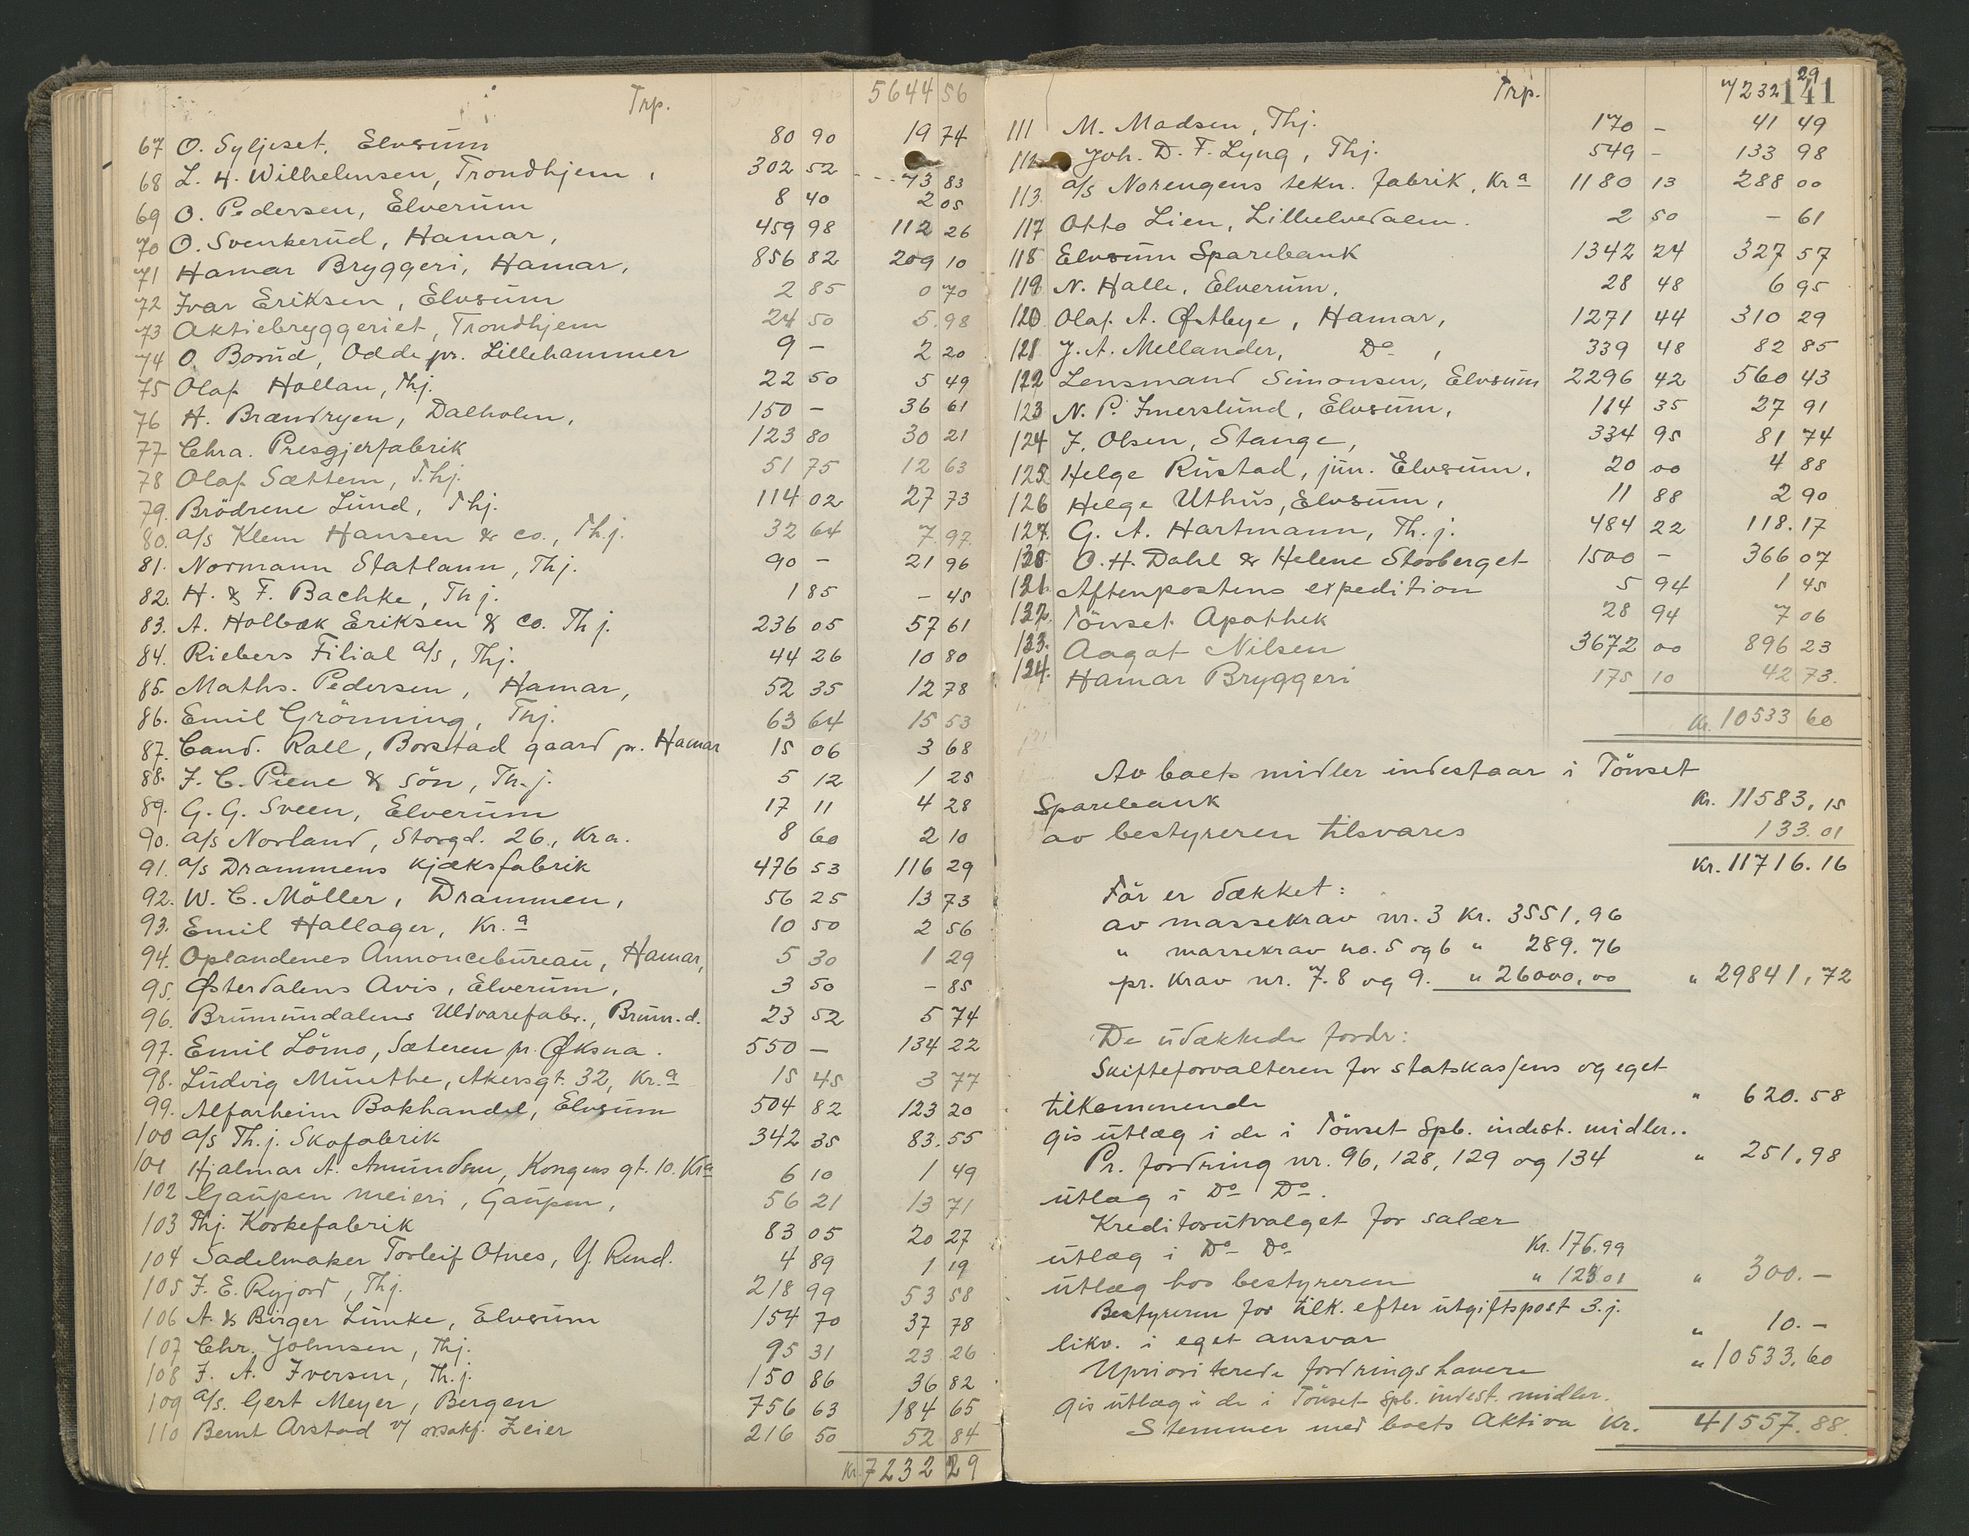 Trp. 5644 56
67 O. Syljeset, Elverum 80 90 19 74
68 L. H. Wilhelmsen, Trondhjem, 302 52 73 83
69 O. Pedersen, Elverum 8 40 2 05
70 O. Svenkerud, Hamar, 459 98 112 26
71 Hamar Bryggeri, Hamar, 856 82 209 10
72 Ivar Eriksen, Elverum 2 85 0 70
73 Aktiebryggeriet, Trondhjem 24 50 5.98
74 O. Borud, Odde pr. Lillehammer 9 – 2 20
75 Olaf Hollan, Thj. 22 50 5 49
76 H. Brændryen, Dalholen, 150 – 36 61
77 Chra. Presgjerfabrik 123 80 30 21
78 Olaf Sættem, Thj. 51 75 12 63
79. Brödrene Lund, Thj. 114 02 27 73
80. a/s Klem Hansen & co., Th.j. 32 64 7.97
81. Normann Statlann, Thj. 90 – 21 96
82. H. & F. Bachke, Thj. 1 85 – 45
83. A. Holbæk Eriksen & co. Thj. 236 05 57 61
84. Riebers Filial a/s, Thj. 44 26 10 80
85. Maths. Pedersen, Hamar, 52 35 12 78
86. Emil Grönning, Thj. 63 64 15 53
87. Cand. Roll, Borstad gaard pr. Hamar 15 06 3 68
88. F. C. Piene & Sön, Th.j. 5 12 1 25
89. G. G. Sveen, Elverum 17 11 4 28
90. a/s Norland, Storgd. 26, Kra. 8 60 2 10
91. a/s Drammens Kjæksfabrik 476 53 116 29
92. W. C. Möller, Drammen, 56 25 13 73
93. Emil Hallager, Kr.a 10 50 2 56
94. Oplandenes Annoncebureau, Hamar, 5 30 1 29
95. Østerdalens Avis, Elverum, 3 50 – 85
96. Brumunddalens Uldvarefabr., Brum.d. 23 52 5 74
97. Emil Lömo, Sæteren pr. Øksna. 550 – 134 22
98. Ludvig Munthe, Akersgt. 32, Kr.a 15 45 3 77
99. Alfarheim Bokhandel, Elverum 504 82 123 20
100 a/s Th.j. Skofabrik 342 35 83.55
101 Hjalmar A. Amundsen, Kongens gt. 10. Kra 6 10 1 49
102 Gaupen meieri, Gaupen, 56 21 13 71
103 Thj. Korkefabrik 83 05 20 27
104 Sadelmaker Torleif Otnes, Y. Rend. 4 89 1 19
105 F. E. Ryjord, Thj. 218 99 53 58
106 A. & Birger Limke, Elverum 154 70 37 78
107 Chr. Johnsen, Thj. 95 31 23 26
108 F. A. Iversen, Th.j. 150 86 36 82
109 a/s. Gert Meyer, Bergen 756 63 184 65
110 Bernt Arstad v/ orsakf. Zeier 216 50 52 84
Kr. 7232 29
Trp. 7232 29
141
111 M. Madsen, Thj. 170 – 41 49
112 Joh. D. F. Lyng, Thj. 549 – 133 98
113. a/s Norengens tekn. fabrik, Kra 1180 13 288 00
117 Otto Lien, Lilleelvedalen. 2 50 – 61
118 Elverum Sparebank 1342 24 327 57
119 N. Halle, Elverum, 28 48 6 95
120 Olaf A. Østbye, Hamar, 1271 44 310 29
121 J. A. Mellander, Do, 339 48 82 85
122 Lensmand Simonsen, Elverum 2296 42 560 43
123 N. P. Imerslund, Elverum, 114 35 27 91
124 J. Olsen, Stange, 334 95 81 74
125 Helge Rustad, jun. Elverum. 20 00 4 88
126 Helge Uthus, Elverum, 11 88 2 90
127. G. A. Hartmann, Th.j. 484 22 118.17
O. H. Dahl & Helene Storberget 1500 – 366 07
131. Aftenpostens expedition 5 94 1 45
132. Tönset Apothek 28 94 7 06
133. Aagot Nilsen 3672 00 896 23
134. Hamar Bryggeri 175 10 42 73.
Kr. 10533 60
Av boets midler indestaar i Tönset
Sparebank Kr. 11583,15
av bestyreren tilsvares 133.01
Kr. 11716.16
För er dækket:
av massekrav nr. 3 Kr. 3551,96
" massekrav no. 5 og 6 " 289.76
pr. Krav nr. 7.8 og 9. " 26000,00 " 29841,72
De udækkede fordr:
Skifteforvalteren for statskassens og eget
tilkommende " 620.58
gis utlæg i de i Tönset Spb. indest. midler..
Pr. fordring nr. 96, 128, 129 og 134 " 251,98
utlæg i Do Do.
Kreditorutvalget for salær
utlæg i Do Do Kr. 176.99
utlæg hos bestyreren " 123 01 " 300.–
Bestyreren for tilk. efter utgiftspost 3.j.
likv. i eget ansvar " 10.–
Uprioriterede fordringshavere " 10533,60
gis utlæg i de i Tönset Spb. indest. midler.
Stemmer med boets Aktiva Kr. 41557.88.